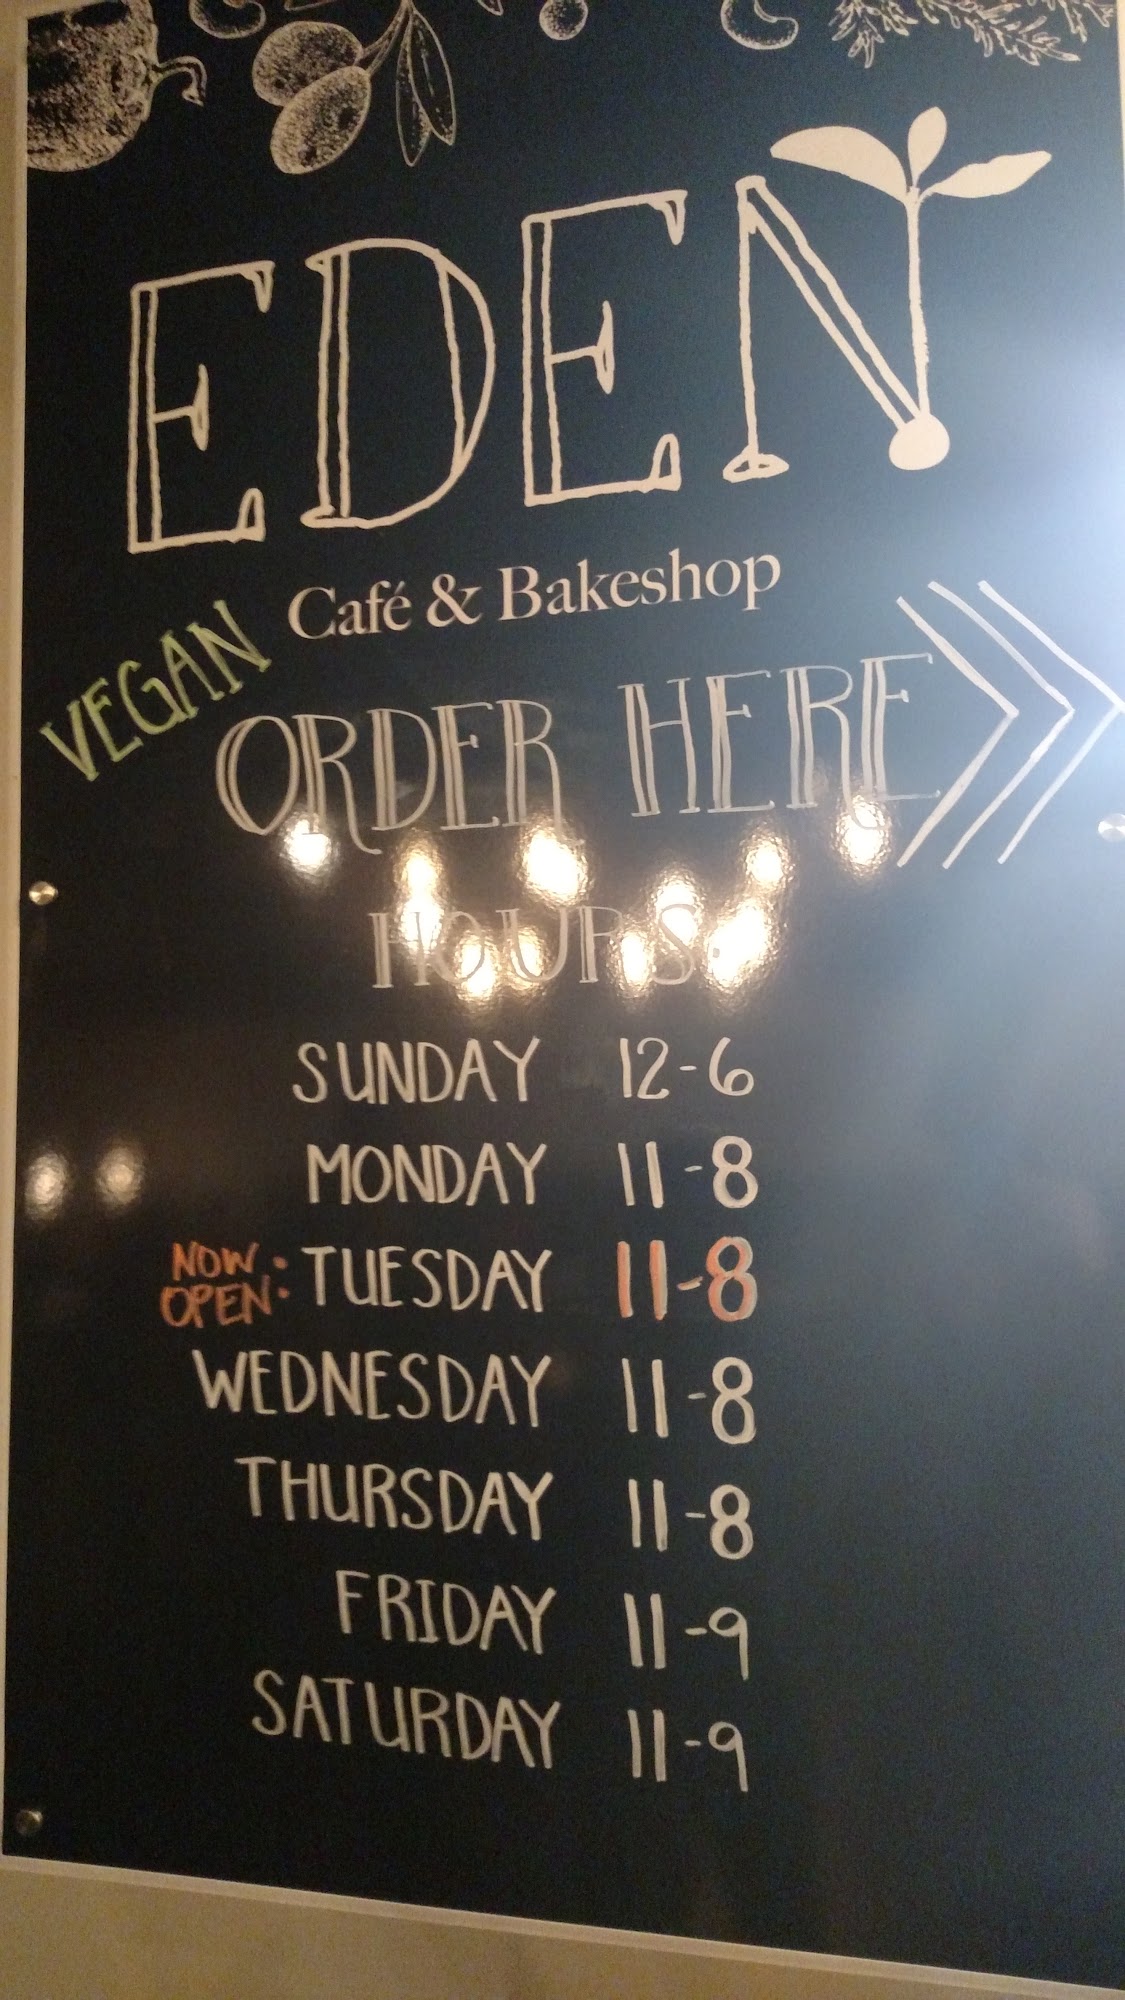 EDEN
Café & Bakeshop
VEGAN
ORDER HERE
HOURS:
SUNDAY 12-6
MONDAY 11-8
NOW OPEN: TUESDAY 11-8
WEDNESDAY 11-8
THURSDAY 11-8
FRIDAY 11-9
SATURDAY 11-9